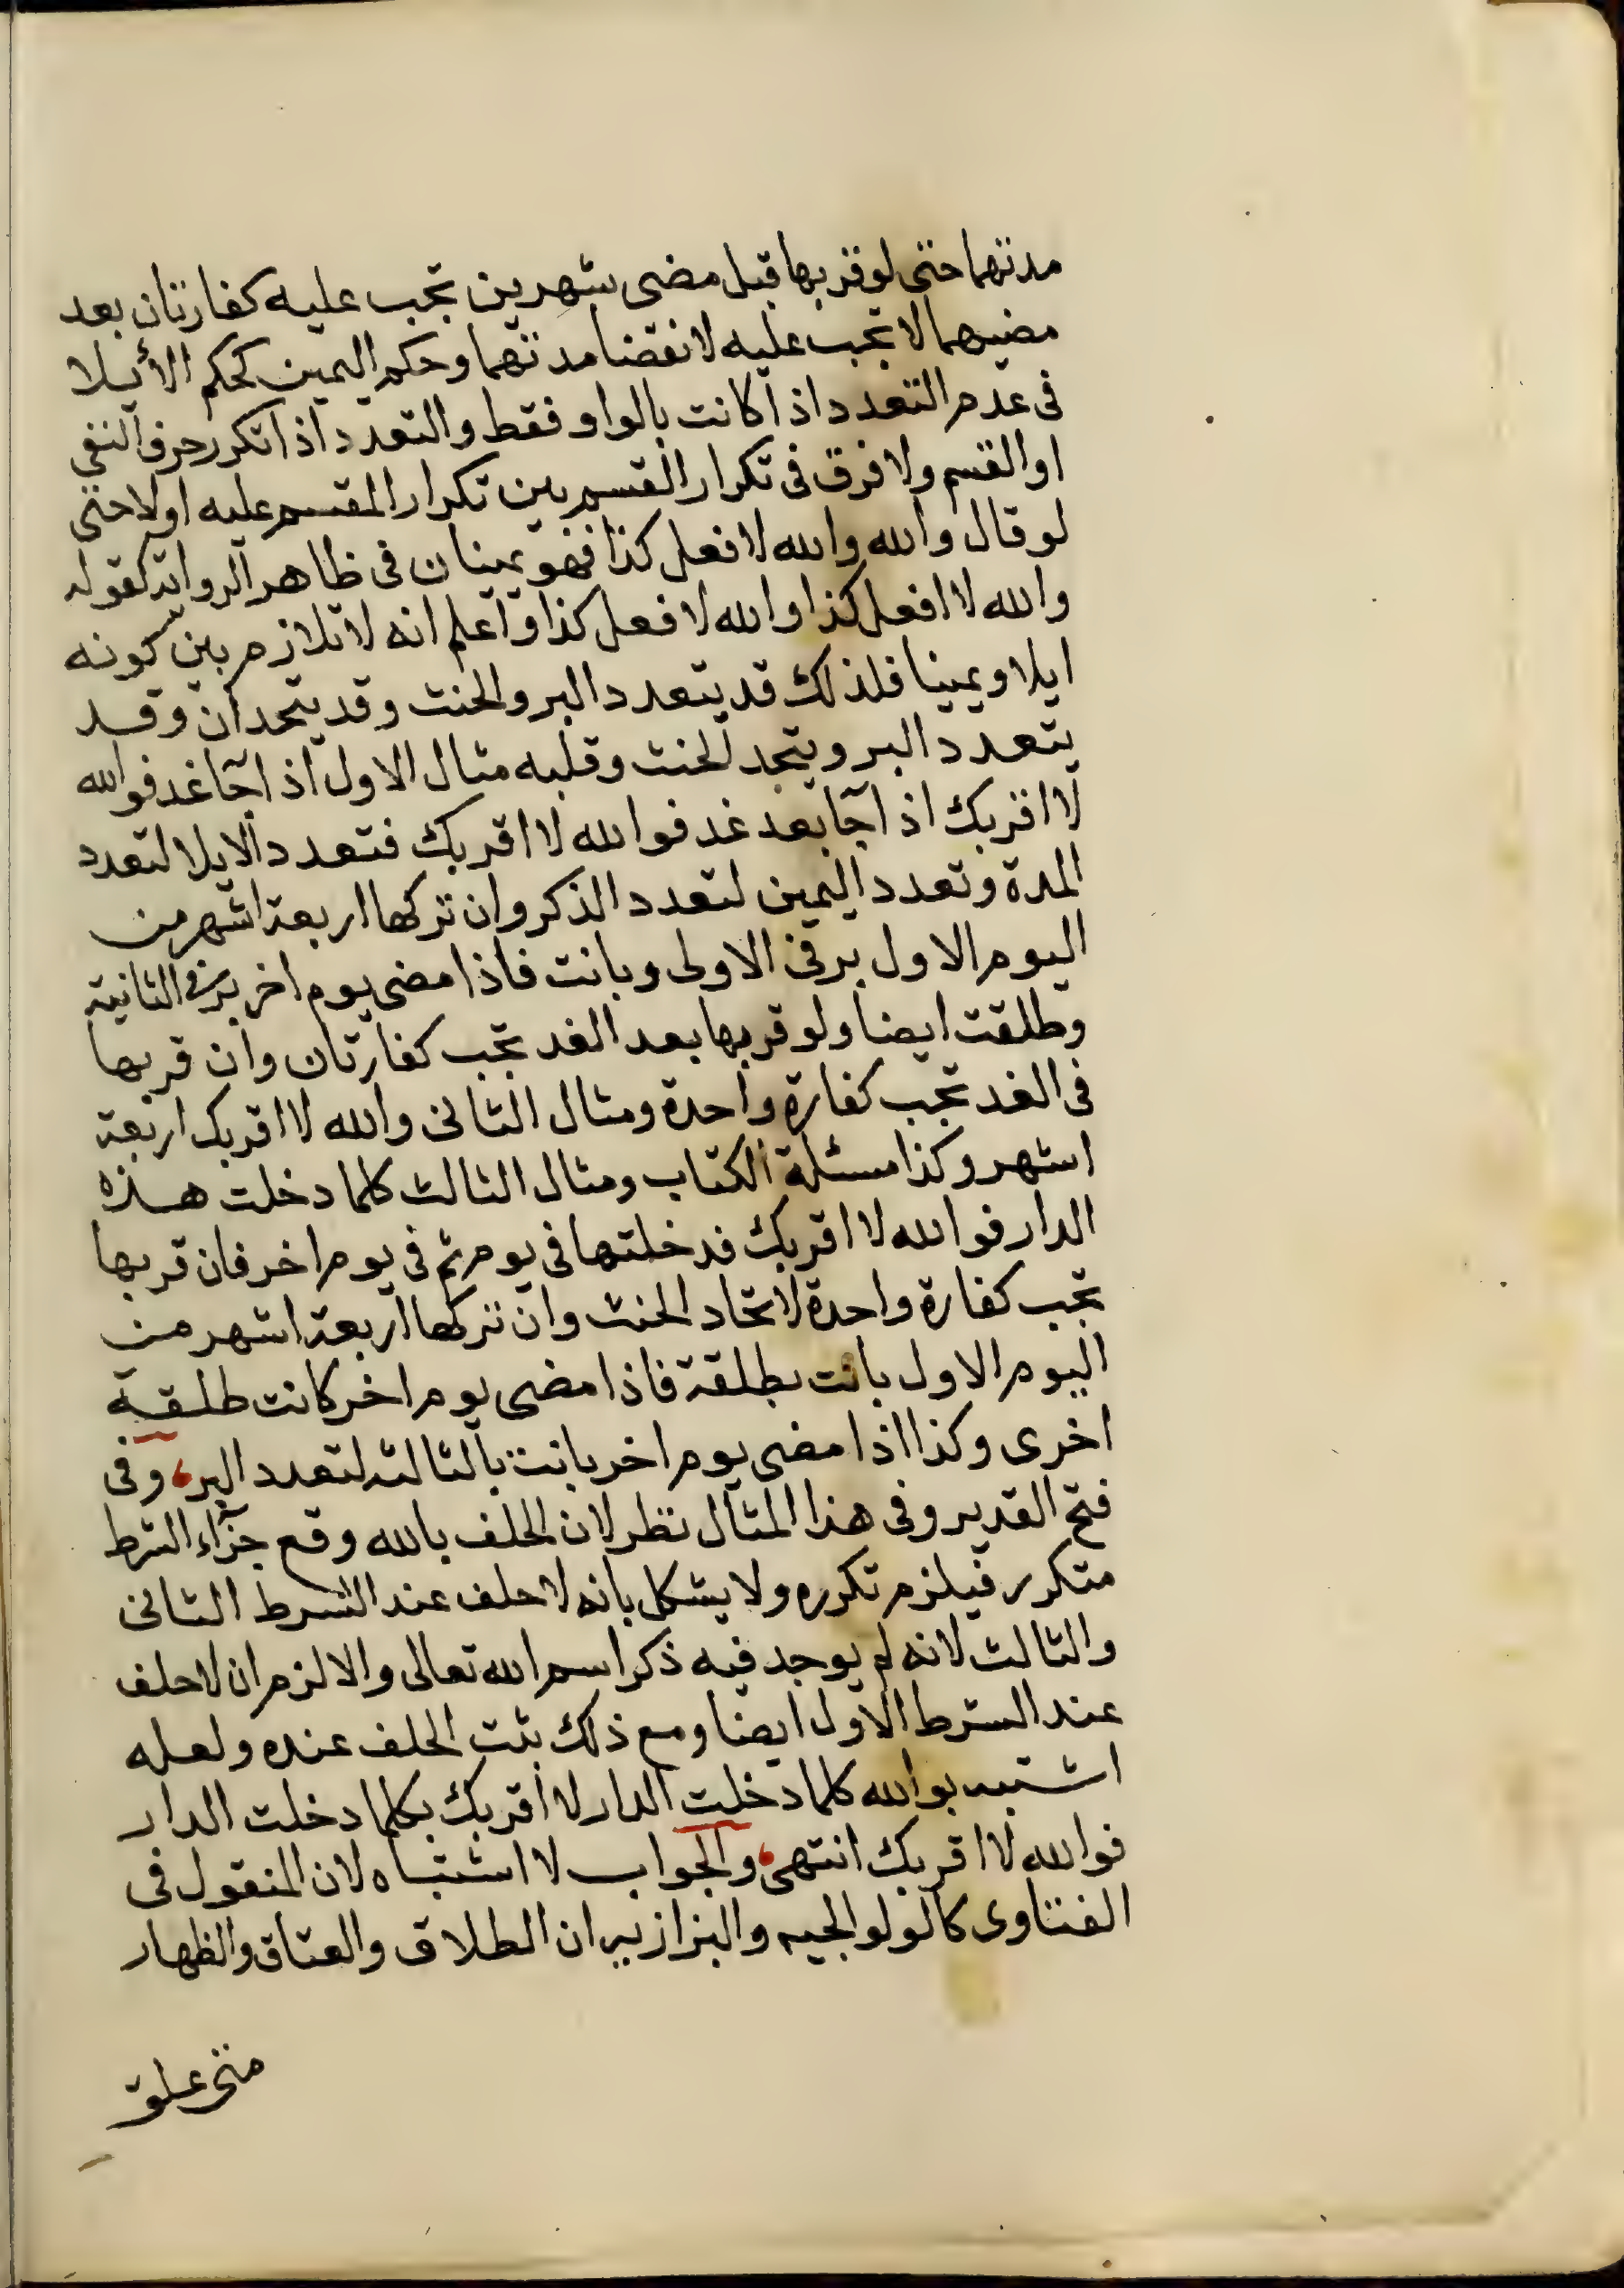 مدتهما حتى لو قربها قبل مضى شهرين تجب عليه كفارتان بعد
مضيهما لا تجب عليه لانقضا مدتهما وحكم اليمين كحكم الأيلا
فى عدم التعدد اذا كانت بالواو فقط والتعدد اذا تكرر حرف النفى
او القسم ولا فرق فى تكرار القسم بين تكرار المقسم عليه اولا حتى
لو قال والله والله لا فعل كذا فهو يمينان فى ظاهر الرواية كقوله
والله لا افعل كذا والله لا فعل كذا واعلم انه لا تلازم بين كونه
ايلا ويمينا فلذلك قد يتعدد البر والحنث وقد يتحدان وقد
يتعدد البر ويتحد الحنث وقلبه مثال الاول اذا جآ غد فوالله
لا اقربك اذا جآ بعد غد فوالله لا اقربك فتعدد الايلا لتعدد
المدة وتعدد اليمين لتعدد الذكر وان تركها اربعة اشهر من
اليوم الاول بر فى الاولى وبانت فاذا مضى يوم اخر بر فى الثانية
وطلقت ايضا ولو قربها بعد الغد تجب كفارتان وان قربها
فى الغد تجب كفارة واحدة ومثال الثانى والله لا اقربك اربعة
اشهر وكذا مسئلة الكتاب ومثال الثالث كلما دخلت هذه
الدار فوالله لا اقربك فدخلتها فى يوم ثم فى يوم اخر فان قربها
تجب كفارة واحدة لاتحاد الحنث وان تركها اربعة اشهر من
اليوم الاول بانت بطلقة فاذا مضى يوم اخر كانت طلقة
اخرى وكذا اذا مضى يوم اخر بانت بالثالثة لتعدد البر، وفى
فتح القدير وفى هذا المثال نظر لان الحلف بالله وقع جزآء الشرط
متكرر فيلزم تكرره ولا يشكل بانه لا حلف عند الشرط الثانى
والثالث لانه لم يوجد فيه ذكر اسم الله تعالى والا لزم ان لا حلف
عند الشرط الاول ايضا ومع ذلك يثبت الحلف عنده ولعله
اشتبه بوالله كلما دخلت الدار لا اقربك بكلما دخلت الدار
فوالله لا اقربك انتهى، والجواب لا اشتباه لان المنقول فى
الفتاوى كالولوالجيه والبزازيه ان الطلاق والعتاق والظهار
متى علق